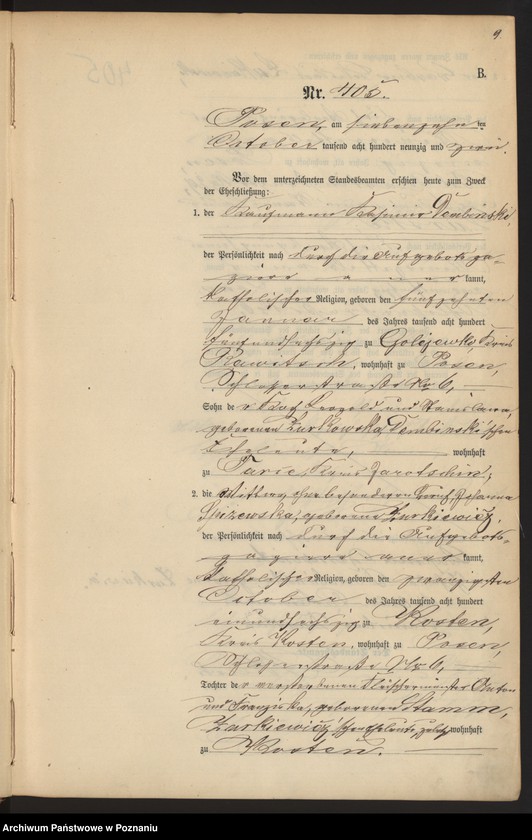 9.
B.
Nr. 405.
Posen, am siebenzehn ten
October tausend acht hundert neunzig und zwei.
Vor dem unterzeichneten Standesbeamten erschien heute zum Zweck
der Eheschließung:
1. der Kaufmann Kasimir Dembinski,
der Persönlichkeit nach durch die Aufgebots pa-
piere kannt,
katholischer Religion, geboren den fünfzehnten
Januar des Jahres tausend acht hundert
fünfundsechszig zu Golejewko, Kreis
Rawitsch, wohnhaft zu Posen,
Schlosserstraße No 6,
Sohn der Leopold und Stanislawa,
geborenen Zurkowska, Dembinski'schen
Eheleute, wohnhaft
zu Tarce, Kreis Jarotschin;
2. die Wittwe, ohne besonderen Beruf, Johanna
geborene Zurkiewicz,
der Persönlichkeit nach durch die Aufgebots-
papiere kannt,
katholischer Religion, geboren den zwanzigsten
October des Jahres tausend acht hundert
einundsechszig zu Kosten,
Kreis Kosten, wohnhaft zu Posen,
Schlosserstraße No 6,
Tochter der verstorbenen Fleischermeister Anton
und Franziska, geborenen Stamm,
Zurkiewicz'schen Eheleute, zuletzt wohnhaft
zu Kosten.
Archiwum Państwowe w Poznaniu